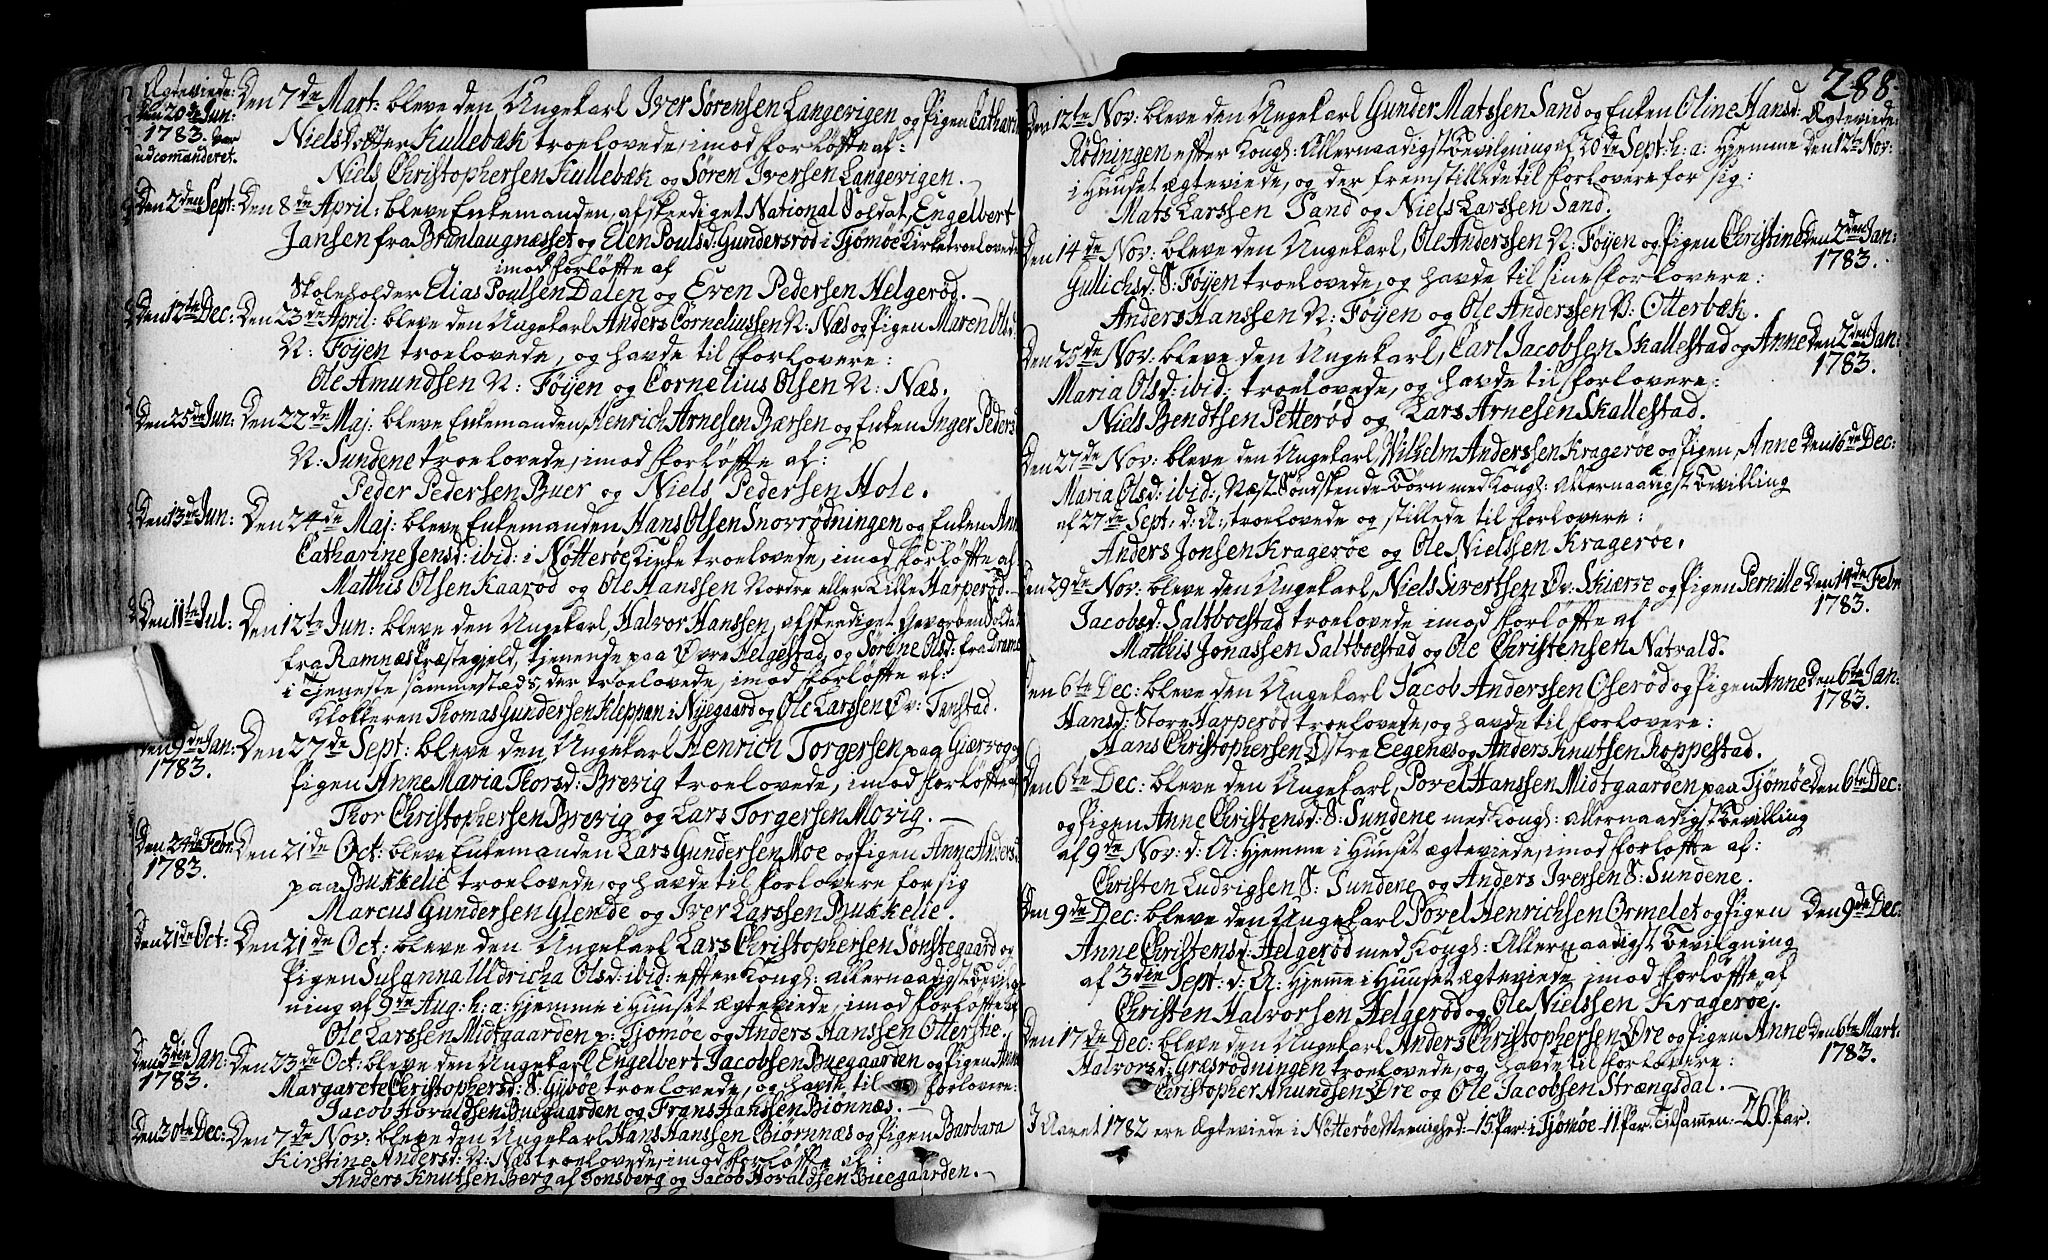 Ægteviede:
Den 20de Jun:
1783. var
udcomanderet.
Den 7de Mart: bleve den Ungekarl Iver Sørensen Langevigen og Pigen Catharin
Nielsdotter Kullebæk troelovede, imod Forløfte af:
Niels Christophersen Kullebæk og Søren Iversen Langevigen.
Den 2den Sept: Den 8de April: bleve Enkemanden, afskeediget National Soldat, Engelbert
Jansen fra Brunlaugnæsset og Elen Poulsd: Gundersrød i Tjømøe Kirke troelovede
imod Forløfte af
Skoleholder Elias Poulsen Dalen og Even Pedersen Helgerød.
Den 12te Dec: Den 23de April: bleve den Ungekarl Anders Corneliussen N: Næs og Pigen Maren Olsd:
N: Føyen troelovede, og havde til Forlovere:
Ole Amundsen N: Føyen og Cornelius Olsen N: Næs.
Den 25de Jun: Den 22de Maj: bleve Enkemanden, Henrich Arnesen Bærsen og Enken Inger Peders
N: Sundene troelovede, imod Forløfte af:
Peder Pedersen Buer og Niels Pedersen Hole.
Den 13de Jun: Den 24de Maj: bleve Enkemanden Hans Olsen Snorrødningen og Enken Ann
Catharine Jensd: ibid: i Nøtterøe Kirke troelovede, imod Forløfte af
Matthis Olsen Kaarød og Ole Hanssen Nordre eller Lille Harperød.
Den 11te Jul: Den 12te Jun: bleve den Ungekarl Halvor Hanssen, afskeediget Gevorben Soldat
fra Ramnæs Præstegjeld, tjenende paa Øvre Helgestad, og Sørine Olsd: fra Dram
i Tjeneste sammestæds, der troelovede, imod Forløfte af:
Klokkeren Thomas Gundersen Kleppan i Nyegaard og Ole Larssen Øv: Tanstad.
Den 9de Jan:
1783.
Den 27de Sept: bleve den Ungekarl Henrich Torgersen paa Gierrog og
Pigen Anne Maria Thorsd: Brevig troelovede, imod Forløfte
Thor Christophersen Brevig og Lars Torgersen Movig.
Den 24de Febr:
1783.
Den 21de Oct: bleve Enkemanden Lars Gundersen Moe og Pigen Anne Anders
paa Bukkelie troelovede, og havde til Forlovere for sig
Marcus Gundersen Glende og Iver Larssen Bukkelie.
Den 21de Oct: Den 21de Oct: bleve den Ungekarl Lars Christophersen Sønstegaard og
Pigen Susanna Uldricha Olsd: ibid: efter Kongl: allernaadigst Bevilg
ning af 9de Aug: h: a: hjemme i Huuset ægteviede, imod Forløfte af
Ole Larssen Midtgaarden p: Tjømøe og Anders Hanssen Otterstie.
Den 3die Jan:
1783.
Den 23de Oct: bleve den Ungekarl Engelbert Jacobsen Buegaarden og Pigen Ann
Margarete Christophersd: S: Gyboe troelovede, og havde til Forlovere:
Jacob Horaldsen Buegaarden og Frans Hanssen Biønnæs.
Den 30te Dec: Den 7de Nov: bleve den Ungekarl Hans Hanssen Biørnnæs og Pigen Barbara
Kirstine Andersd: N: Næs troelovede, imod Forløfte af:
Anders Knutsen Berg af Tønsberg og Jacob Horaldsen Buegaarden.
288.
Den 12te Nov: bleve den Ungekarl Gunder Matssen Sand og Enken Oline Hansd: Ægteviede
Rødningen efter Kongl: Allernaadigst Bevilgning af 20de Sept: h: a: hjemme Den 12te Nov:
i Huuset ægteviede, og der fremstillede til Forlovere for sig:
Mats Larssen Sand og Niels Larssen Sand.
Den 14de Nov: bleve den Ungekarl, Ole Anderssen N: Føyen og Pigen Christine Den 2den Jan:
1783.
Gullichsd: S: Føyen troelovede, og havde til sine Forlovere:
Anders Hanssen N: Føyen og Ole Anderssen N: Otterbæk.
Den 25de Nov: bleve den Ungekarl, Carl Jacobsen Skallestad og Anne Den 2den Jan:
1783.
Maria Olsd: ibid: troelovede, og havde til Forlovere:
Niels Bendtsen Petterød og Lars Arnesen Skallestad.
Den 27de Nov: bleve den Ungekarl, Wilhelm Anderssen Kragerøe og Pigen, Anne Den 16de Dec:
Maria Olsd: ibid:, Næst-Søndskende-Børn med Kongl: allernaadigst Bevilling
af 27de Sept: d: A:, troelovede og stillede til Forlovere:
Anders Jonsen Kragerøe og Ole Nielssen Kragerøe.
Den 29de Nov: bleve den Ungekarl, Niels Sivertsen Øv: Skierve og Pigen Pernille Den 14de Febr
1783.
Jacobsd: Saltboestad troelovede imod Forløfte af
Matthis Jonassen Saltboestad og Ole Christensen Natvald.
Den 6te Dec: bleve den Ungekarl Jacob Anderssen Oserød og Pigen Anne Den 6te Jan:
1783.
Hansd: Store Harperød troelovede, og havde til Forlovere:
Hans Christophersen Østre Eegenæs og Anders Knutsen Roppestad.
Den 6te Dec: bleve den Ungekarl, Povel Hanssen Midtgaarden paa Tjømøe Den 6te Dec:
og Pigen Anne Christensd: S: Sundene med Kongl: allernaadigst Bevilling
af 9de Nov: d: A: hjemme i Huuset ægteviede, imod Forløfte af:
Christen Ludvigsen S: Sundene og Anders Iversen S: Sundene.
Den 9de Dec: bleve den Ungekarl Povel Henrichsen Ormelet og Pigen Den 9de Dec:
Anne Christensd: Helgerød med Kongl: Allernaadigst Bevilgning
af 3die Sept: d: A: hjemme i Huuset ægteviede, imod Forløfte af
Christen Halvorsen Helgerød og Ole Nielssen Kragerøe.
Den 17de Dec: bleve den Ungekarl Anders Christophersen Øre og Pigen Anne Den 6te Mart:
1783.
Halvorsd: Grasrødningen troelovede, og havde til Forlovere:
Christopher Anundsen Øre og Ole Jacobsen Strængsdal.
I Aaret 1782 ere Ægteviede i Nøtterøe Menighed - 15 Par. i Tjømøe - 11 Par. Tilsammen: - 26. Par.